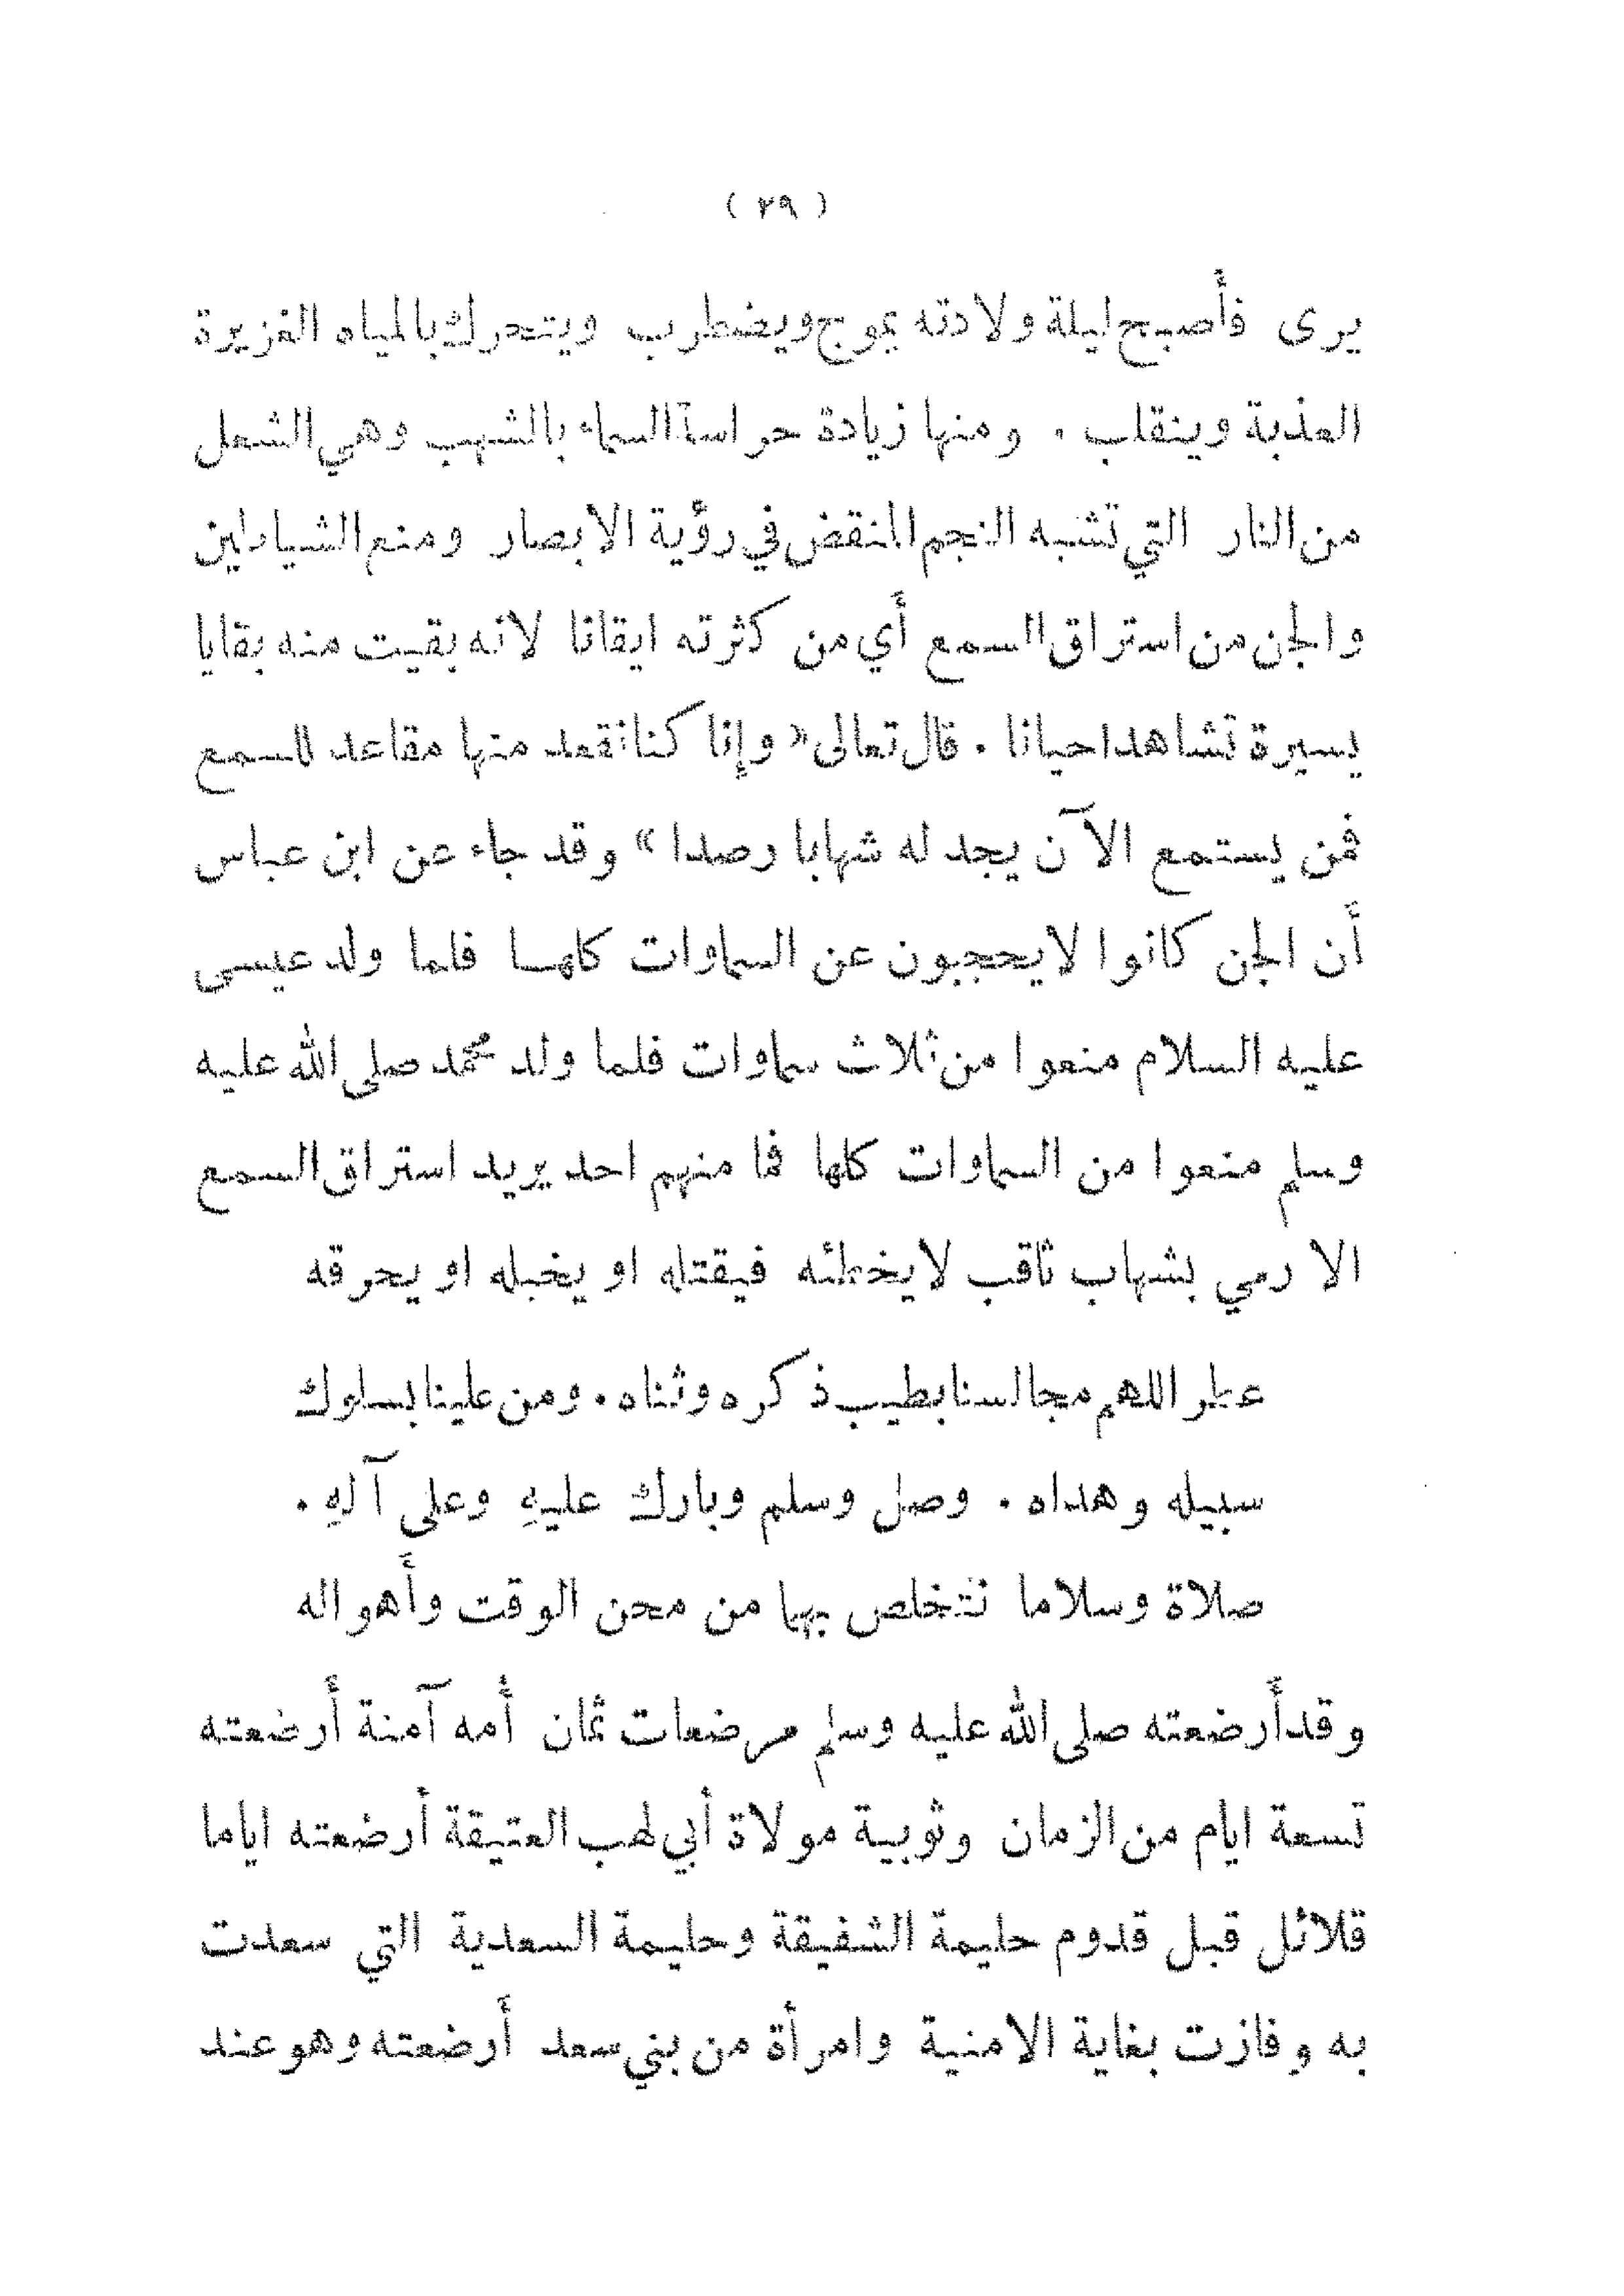 ( ٢٩ )
يرى فأصبح ليلة ولادته يموج ويضطرب ويتحرك بالمياه الغزيرة
العذبة وينقلب . ومنها زيادة حراسة السماء بالشهب وهي الشعل
من النار التي تشبه النجم المنقض في رؤية الابصار ومنع الشياطين
والجن من استراق السمع أي من كثرته ايقانا لانه بقيت منه بقايا
يسيرة تشاهد احيانا . قال تعالى « وإنا كنا نقعد منها مقاعد للسمع
فمن يستمع الآن يجد له شهابا رصدا » وقد جاء عن ابن عباس
أن الجن كانوا لا يحجبون عن السماوات كلها فلما ولد عيسى
عليه السلام منعوا من ثلاث سماوات فلما ولد محمد صلى الله عليه
وسلم منعوا من السماوات كلها فما منهم احد يريد استراق السمع
الا رمي بشهاب ثاقب لا يخطئه فيقتله او يخبله او يحرقه
عطر اللهم مجالسنا بطيب ذكره وثناه . ومن علينا بسلوك
سبيله وهداه . وصل وسلم وبارك عليهِ وعلى آلهِ .
صلاة وسلاما نتخلص بها من محن الوقت وأهواله
وقد أرضعته صلى الله عليه وسلم مرضعات ثمان أمه آمنة أرضعته
تسعة ايام من الزمان وثويبة مولاة أبي لهب العتيقة أرضعته اياما
قلائل قبل قدوم حليمة الشفيقة وحليمة السعدية التي سعدت
به وفازت بغاية الامنية وامرأة من بني سعد أرضعته وهو عند